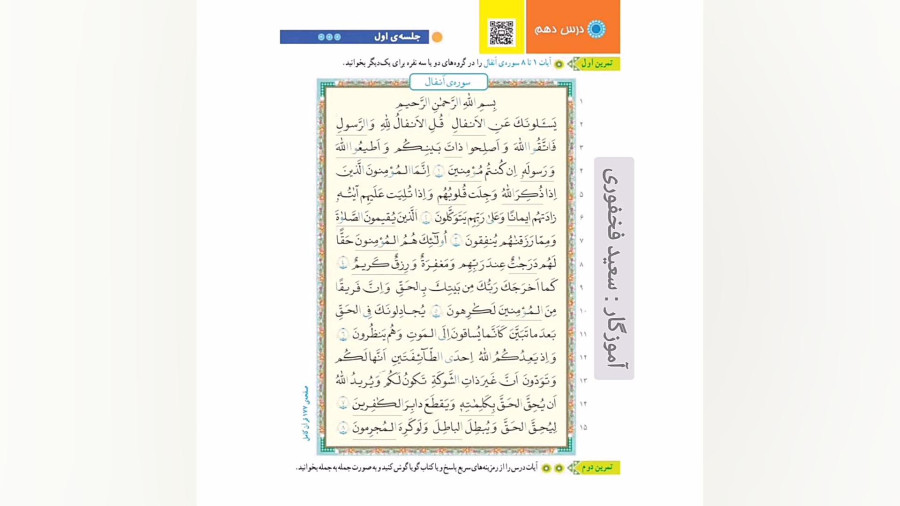 درس دهم
جلسه‌ی اول
تمرین اول
آیات ۱ تا ۸ سوره‌ی اَنفال را در گروه‌های دو یا سه نفره برای یک‌دیگر بخوانید.
سوره‌ی اَنفال
۱ بِسمِ اللهِ الرَّحمٰنِ الرَّحیمِ
۲ یَسـَٔلونَکَ عَنِ الاَنفالِ قُلِ الاَنفالُ لِلّٰهِ وَ الرَّسولِ
۳ فَاتَّقُوا اللهَ وَ اَصلِحوا ذاتَ بَینِکُم وَ اَطیعُوا اللهَ
۴ وَ رَسولَهٗ اِن کُنتُم مُؤمِنینَ ۱ اِنَّمَا المُؤمِنونَ الَّذینَ
۵ اِذا ذُکِرَ اللهُ وَجِلَت قُلوبُهُم وَ اِذا تُلِیَت عَلَیهِم ءایٰتُهٗ
۶ زادَتهُم ایمانًا وَ عَلیٰ رَبِّهِم یَتَوَکَّلونَ ۲ اَلَّذینَ یُقیمونَ الصَّلوٰةَ
۷ وَ مِمّا رَزَقنٰهُم یُنفِقونَ ۳ اُولٰٓئِکَ هُمُ المُؤمِنونَ حَقًّا
۸ لَهُم دَرَجٰتٌ عِندَ رَبِّهِم وَ مَغفِرَةٌ وَ رِزقٌ کَریمٌ ۴
۹ کَما اَخرَجَکَ رَبُّکَ مِن بَیتِکَ بِالحَقِّ وَ اِنَّ فَریقًا
۱۰ مِنَ المُؤمِنینَ لَکٰرِهونَ ۵ یُجادِلونَکَ فِی الحَقِّ
۱۱ بَعدَ ما تَبَیَّنَ کَاَنَّما یُساقونَ اِلَی المَوتِ وَ هُم یَنظُرونَ ۶
۱۲ وَ اِذ یَعِدُکُمُ اللهُ اِحدَی الطّآئِفَتَینِ اَنَّها لَکُم
۱۳ وَ تَوَدّونَ اَنَّ غَیرَ ذاتِ الشَّوکَةِ تَکونُ لَکُم وَ یُریدُ اللهُ
۱۴ اَن یُحِقَّ الحَقَّ بِکَلِمٰتِهٖ وَ یَقطَعَ دابِرَ الکٰفِرینَ ۷
۱۵ لِیُحِقَّ الحَقَّ وَ یُبطِلَ الباطِلَ وَ لَو کَرِهَ المُجرِمونَ ۸
صفحه‌ی ۱۷۷ قرآن کامل
آموزگار : سعید فخفوری
تمرین دوم
آیات درس را از رمزینه‌های سریع پاسخ و یا کتاب گویا گوش کنید و به صورت جمله به جمله بخوانید.